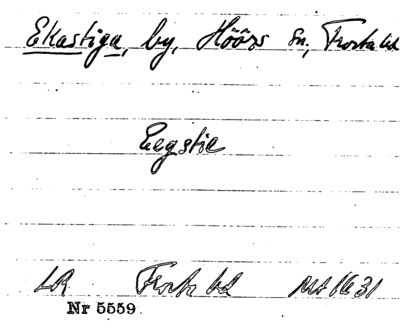 Ekastiga, by, Höörs sn, Frosta hd
Eegstie
LR Frosta hd 1631
Nr 5559.